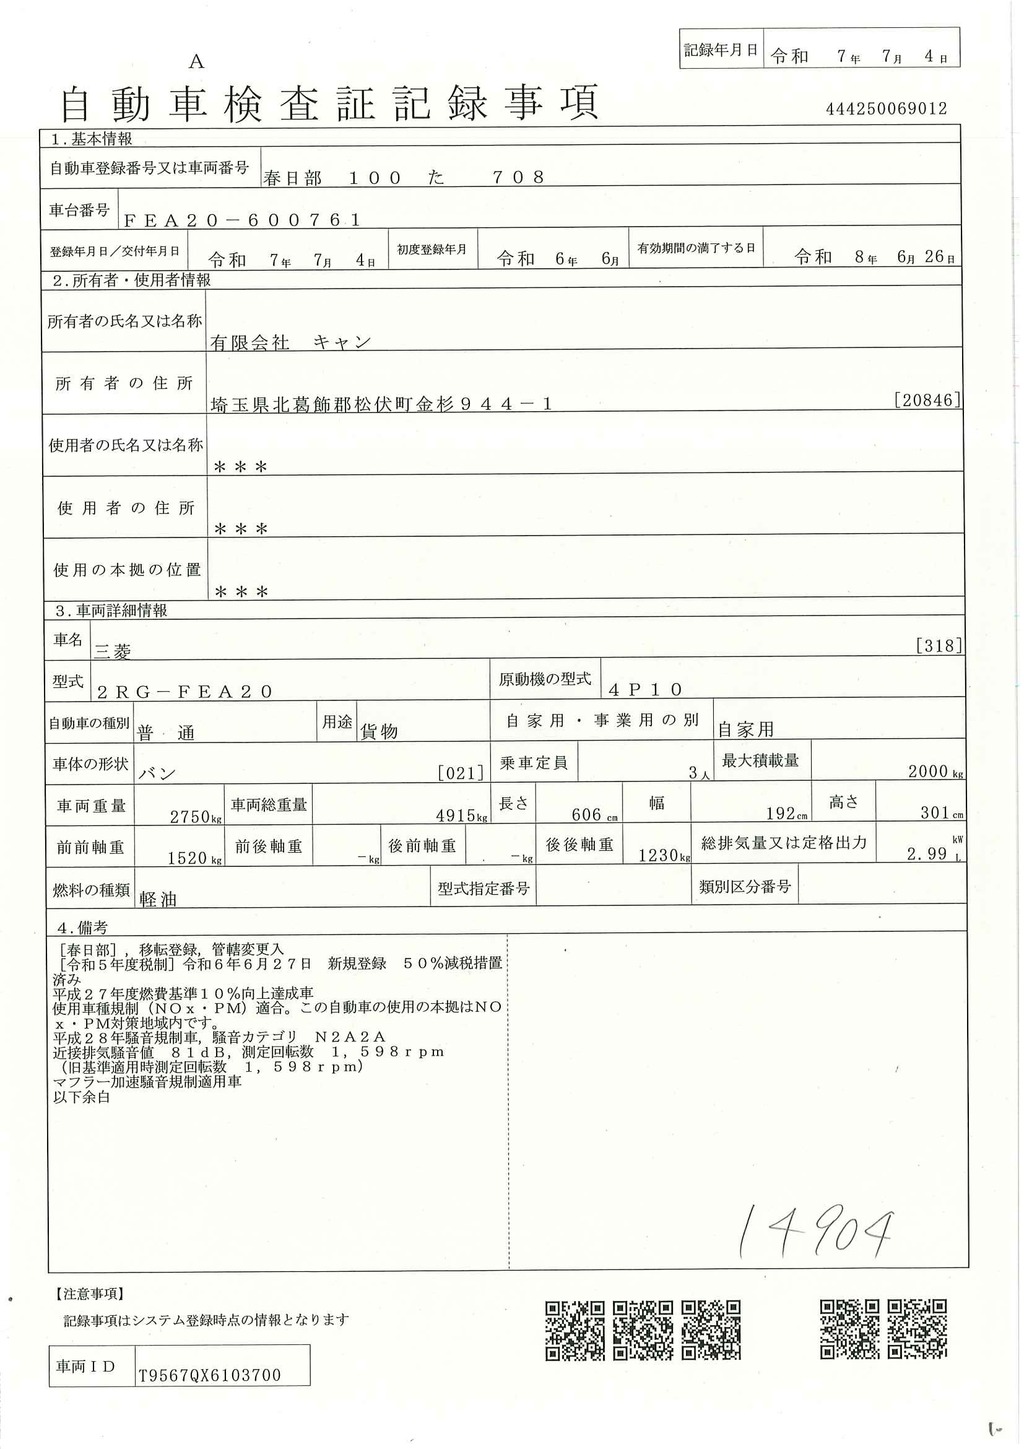 記録年月日 令和 7年 7月 4日
A
自動車検査証記録事項
444250069012
1.基本情報
自動車登録番号又は車両番号 春日部 １００ た ７０８
車台番号 ＦＥＡ２０－６００７６１
登録年月日／交付年月日 令和 7年 7月 4日 初度登録年月 令和 6年 6月 有効期間の満了する日 令和 8年 6月26日
2.所有者・使用者情報
所有者の氏名又は名称 有限会社 キャン
所有者の住所 埼玉県北葛飾郡松伏町金杉９４４－１ [20846]
使用者の氏名又は名称 ＊＊＊
使用者の住所 ＊＊＊
使用の本拠の位置 ＊＊＊
3.車両詳細情報
車名 三菱 [318]
型式 ２ＲＧ－ＦＥＡ２０ 原動機の型式 ４Ｐ１０
自動車の種別 普通 用途 貨物 自家用・事業用の別 自家用
車体の形状 バン [021] 乗車定員 3人 最大積載量 2000kg
車両重量 2750kg 車両総重量 4915kg 長さ 606cm 幅 192cm 高さ 301cm
前前軸重 1520kg 前後軸重 －kg 後前軸重 －kg 後後軸重 1230kg 総排気量又は定格出力 2.99 kW L
燃料の種類 軽油 型式指定番号 類別区分番号
4.備考
［春日部］，移転登録，管轄変更入
［令和５年度税制］令和６年６月２７日 新規登録 ５０％減税措置
済み
平成２７年度燃費基準１０％向上達成車
使用車種規制（ＮＯｘ・ＰＭ）適合。この自動車の使用の本拠はＮＯ
ｘ・ＰＭ対策地域内です。
平成２８年騒音規制車，騒音カテゴリ Ｎ２Ａ２Ａ
近接排気騒音値 ８１ｄＢ，測定回転数 １，５９８ｒｐｍ
（旧基準適用時測定回転数 １，５９８ｒｐｍ）
マフラー加速騒音規制適用車
以下余白
14904
【注意事項】
記録事項はシステム登録時点の情報となります
車両ＩＤ T9567QX6103700